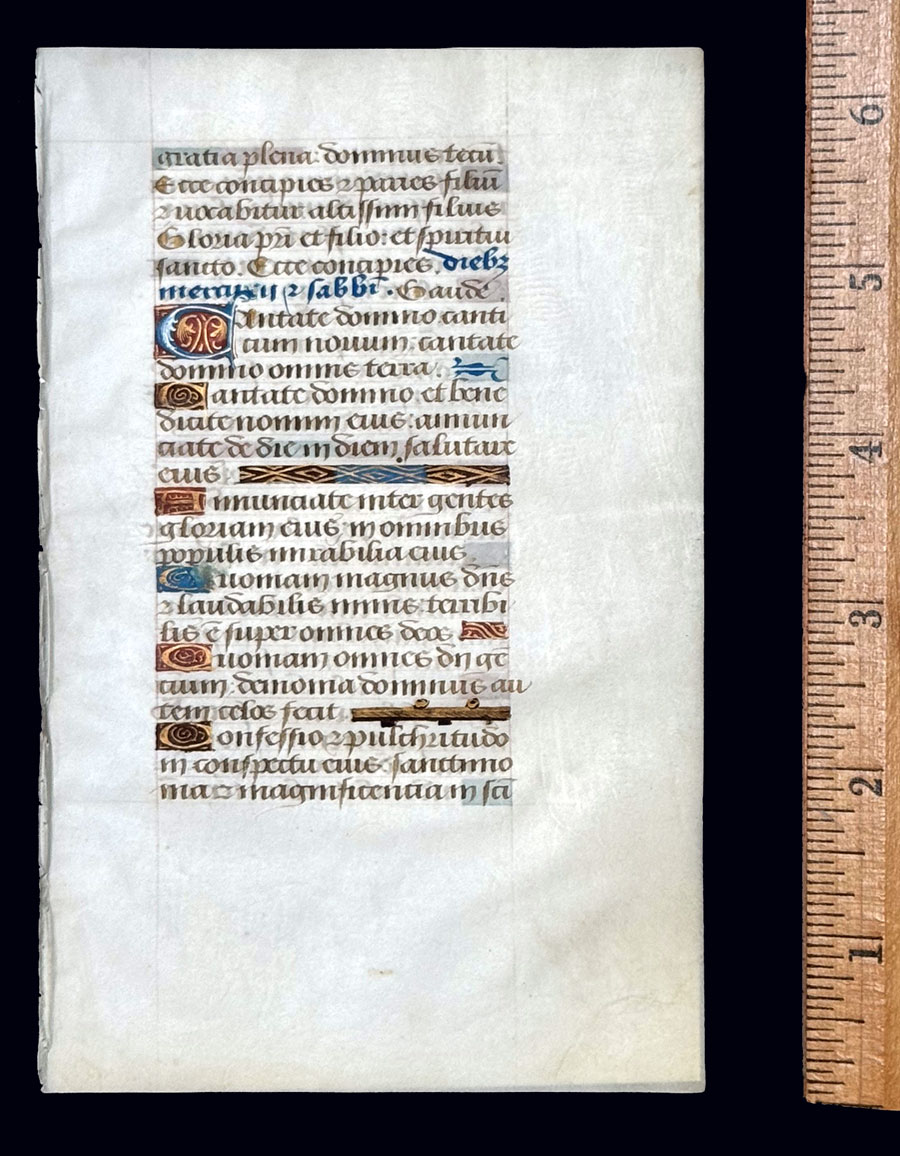 gratia plena: dominus tecū.
Ecce concipies ⁊ paries filiū
⁊ vocabitur altissimi filius
Gloria pri et filio: et spiritui
sancto. Ecce concipies. diebꝫ
mercurii ⁊ sabbi. Gaude.
Cantate domino canti
cum novum: cantate
domino omnis terra.
Cantate domino. et bene
dicite nomini eius: annun
ciate de die in diem salutare
eius
Annunciate inter gentes
gloriam eius: in omnibus
populis mirabilia eius.
Quoniam magnus dns
⁊ laudabilis nimis: terribi
lis ē super omnes deos.
Quoniam omnes dii gē
tium: demonia dominus au
tem celos fecit.
Confessio ⁊ pulchritudo
in conspectu eius: sanctimo
nia ⁊ magnificencia in scī
6
5
4
3
2
1